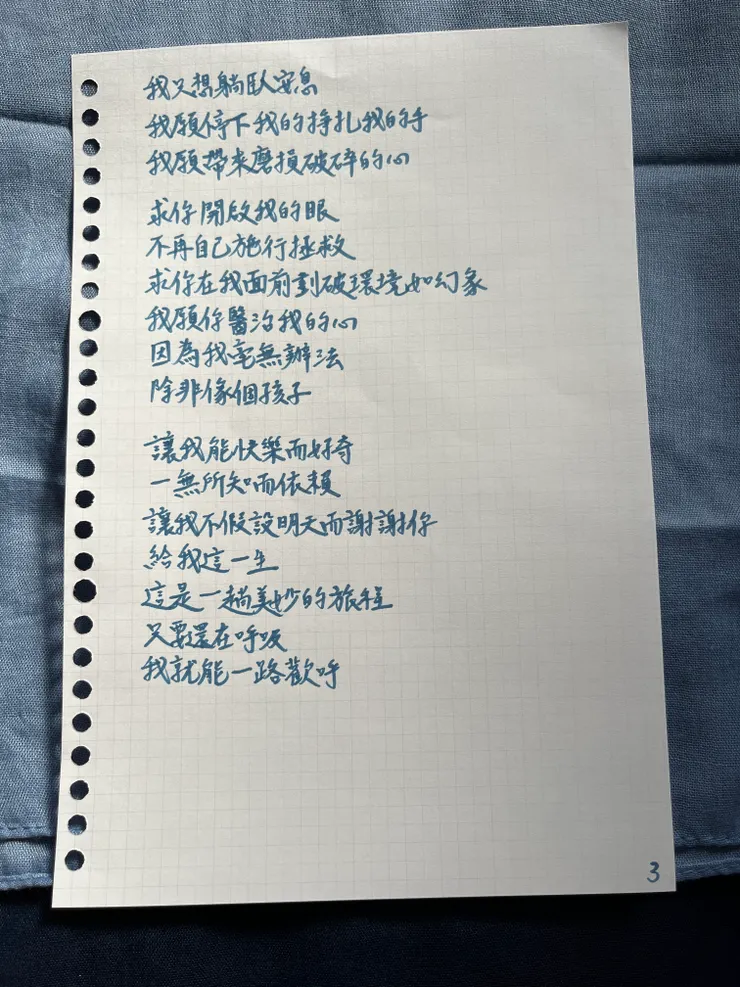 我只想躺臥安息
我願停下我的掙扎我的手
我願帶來磨損破碎的心
求你開啟我的眼
不再自己施行拯救
求你在我面前劃破環境如幻象
我願你醫治我的心
因為我毫無辦法
除非像個孩子
讓我能快樂而好奇
一無所知而依賴
讓我不假設明天而謝謝你
給我這一生
這是一趟美妙的旅程
只要還在呼吸
我就能一路歡呼
3